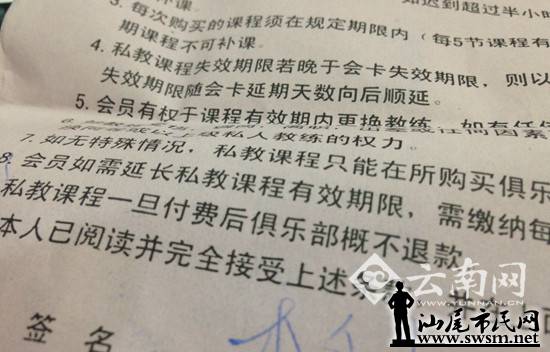 补课。
如迟到超过半小时
3. 每次购买的课程须在规定期限内（每5节课程有
期课程不可补课。
4. 私教课程失效期限若晚于会卡失效期限，则以
失效期限随会卡延期天数向后顺延。
5. 会员有权于课程有效期内更换教练，如有任
因素
私人教练的权力。
7. 如无特殊情况，私教课程只能在所购买俱乐
8. 会员如需延长私教课程有效期限，需缴纳每
私教课程一旦付费后俱乐部概不退款
本人已阅读并完全接受上述条
签 名
云南网
WWW.YUNNAN.CN
汕尾市民网
www.swsm.net